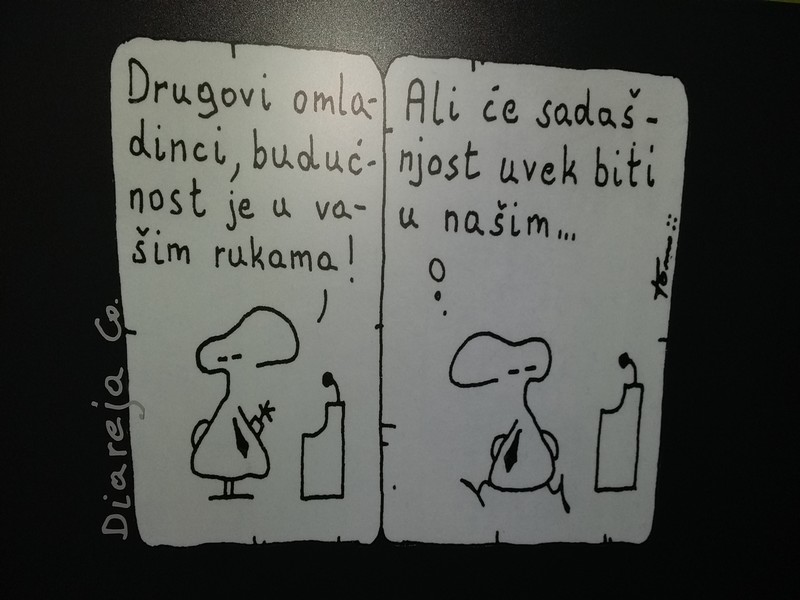 Drugovi omla-
dinci, buduć-
nost je u va-
šim rukama!
Ali će sadaš-
njost uvek biti
u našim...
Diareja Co.